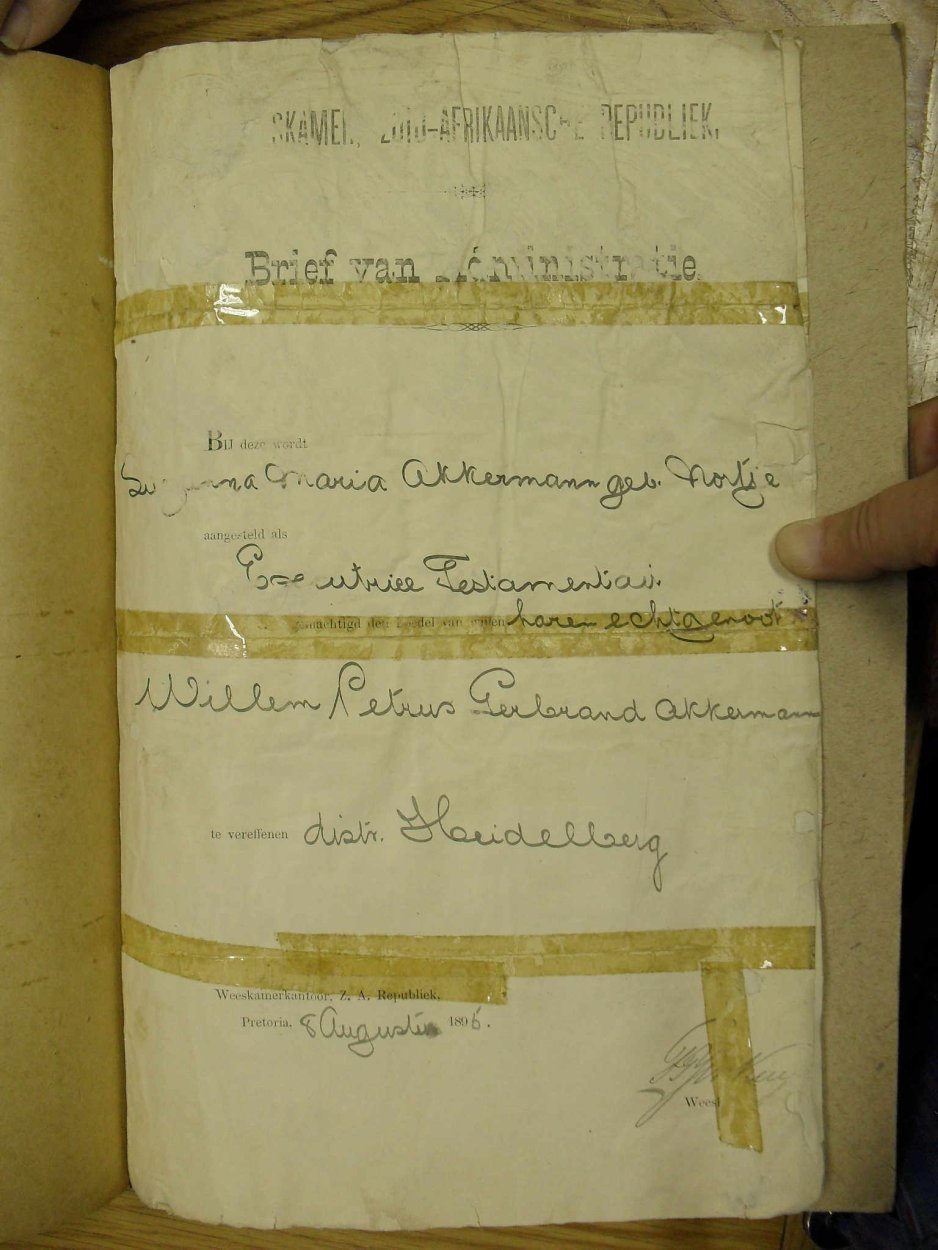 SKAMER, ZUID-AFRIKAANSCHE REPUBLIEK.
Brief van Administratie.
BIJ deze wordt
Susanna Maria Akkermann geb. Nortje
aangesteld als
Executrice Testamentair
gemachtigd den boedel van wijlen haren echtgenoot
Willem Petrus Gerbrand Akkermann
te vereffenen distr. Heidelberg
Weeskamerkantoor, Z. A. Republiek,
Pretoria, 8 Augustus 1896.
Wees